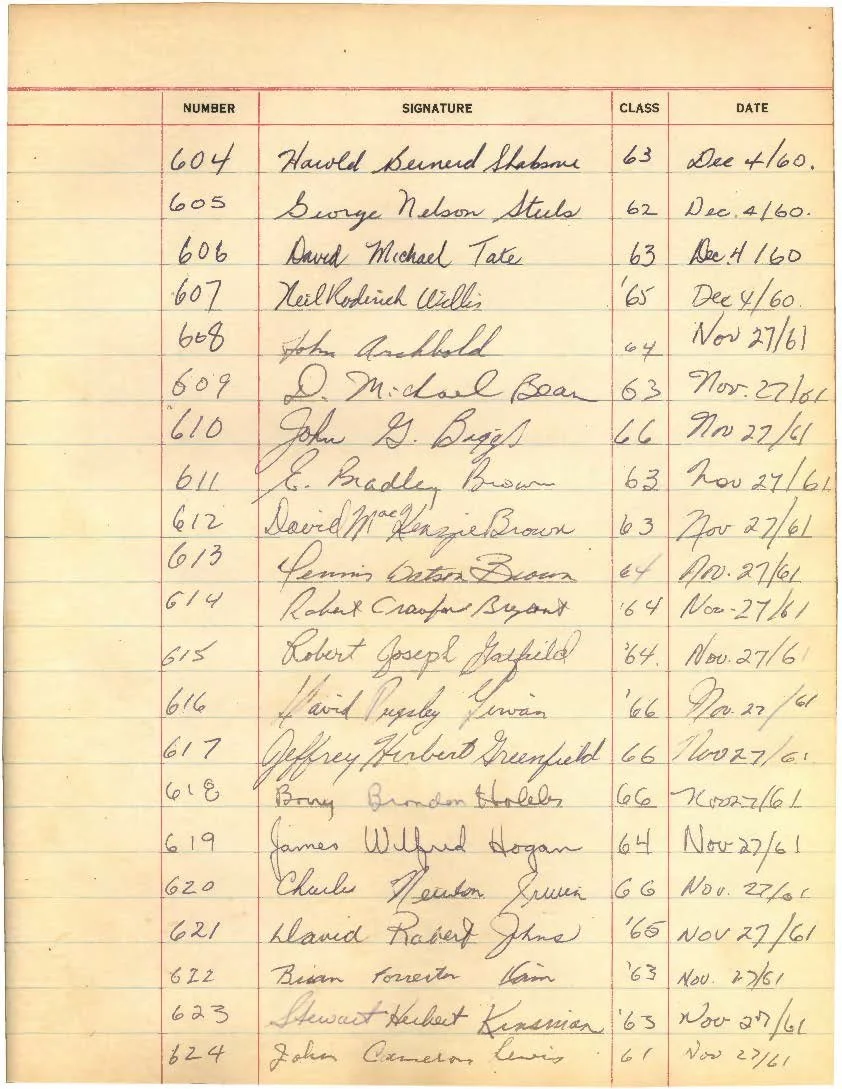 NUMBER SIGNATURE CLASS DATE
604 Harold Bernerd 63 Dec 4/60.
605 George Nelson Steels 62 Dec. 4/60.
606 David Michael Tate 63 Dec. 4/60
607 Neil Roderick Willis '65 Dec 4/60.
608 John Archbold 64 Nov 27/61
609 D. Michael Bean 63 Nov. 27/61
610 John G. Biggs 66 Nov 27/61
611 E. Bradley Brown '63 Nov 27/61
612 David MacKenzie Brown '63 Nov 27/61
613 Watson Brown 64 Nov. 27/61
614 Robert Crawford Bryant '64 Nov-27/61
615 Robert Joseph Gatfield '64. Nov. 27/61
616 David '66 Nov. 27/61
617 Jeffrey Herbert Greenfield 66 Nov 27/61
618 Barry Brandon Hobbs 66 Nov 27/61
619 James Wilfred Hogan 64 Nov 27/61
620 Charles Newton Erwin 66 Nov. 27/61
621 David Robert Johns '65 Nov 27/61
622 Brian Forrester Kaim '63 Nov. 27/61
623 Stewart Herbert Kinsman '63 Nov 27/61
624 John Cameron Lewis 61 Nov 27/61